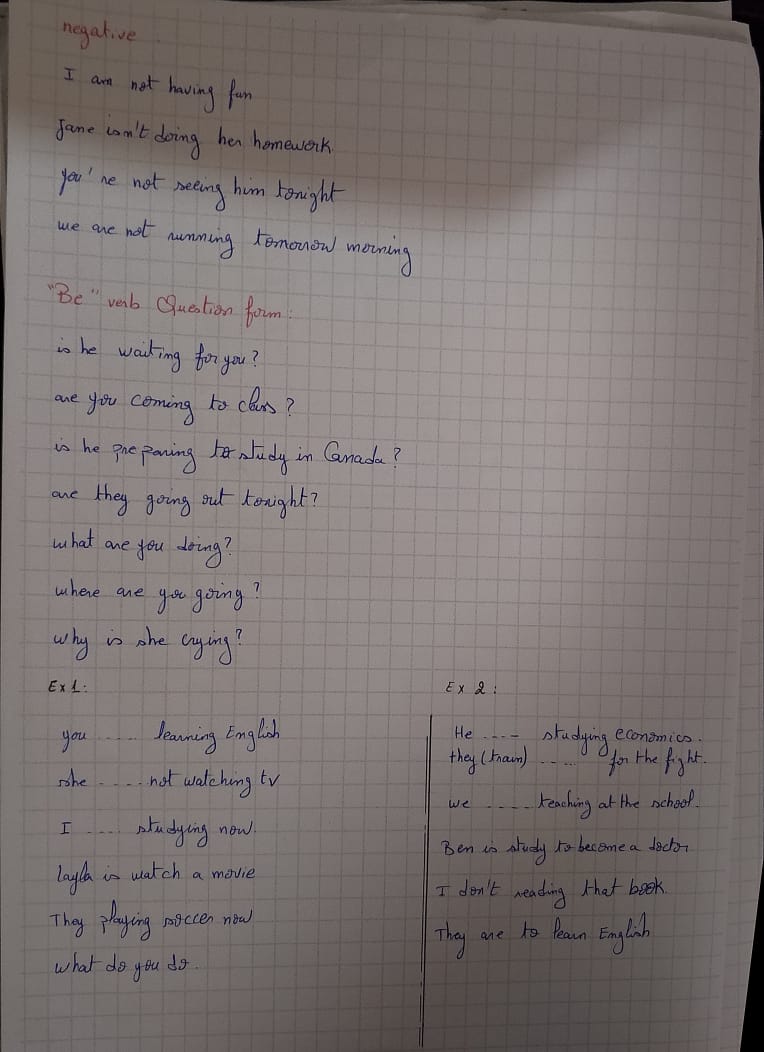 negative.
I am not having fun
Jane isn't doing her homework.
you're not seeing him tonight
we are not running tomorrow morning
"Be" verb Question form:
is he waiting for you?
are you coming to class?
is he preparing to study in Canada?
are they going out tonight?
what are you doing?
where are you going?
why is she crying?
Ex 1:
you ..... learning English
she ..... not watching tv
I ..... studying now.
Layla is watch a movie
They playing soccer now
what do you do.
Ex 2:
He ..... studying economics.
they (train) ..... for the fight.
we ..... teaching at the school.
Ben is study to become a doctor
I don't reading that book.
They are to learn English